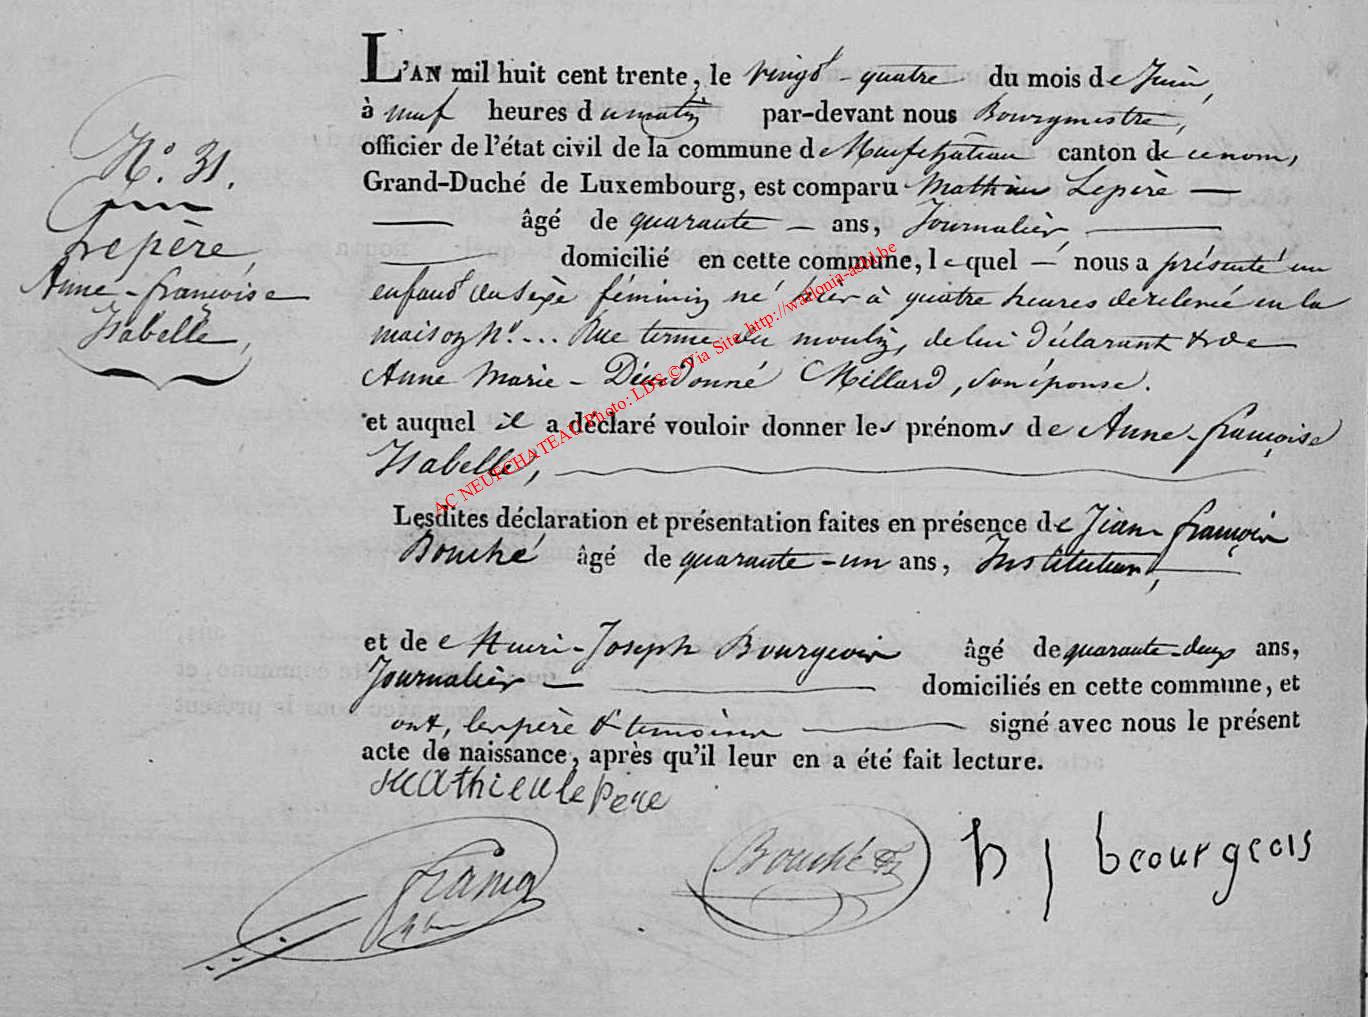 N.° 31.
Lepère
Anne-françoise
Isabelle,
L'AN mil huit cent trente, le vingt-quatre du mois de Juin,
à neuf heures du matin par-devant nous Bourgmestre,
officier de l'état civil de la commune de Neufchâteau canton de ce nom,
Grand-Duché de Luxembourg, est comparu Mathieu Lepère —
— âgé de quarante — ans, Journalier, —
— domicilié en cette commune, le quel — nous a présenté un
enfant du sexe féminin né hier à quatre heures de relevée en la
maison N.° ... Rue terme du moulin, de lui déclarant & de
Anne Marie-Dieudonné Millard, son épouse.
et auquel il a déclaré vouloir donner les prénoms de Anne-françoise
Isabelle,
Lesdites déclaration et présentation faites en présence de Jean françois
Bouché âgé de quarante-un ans, Instituteur,
et de Henri-Joseph Bourgeois âgé de quarante-deux ans,
Journalier — domiciliés en cette commune, et
ont, les père & témoins — signé avec nous le présent
acte de naissance, après qu'il leur en a été fait lecture.
Mathieu le pere
Bouché
h j beourgeois
AC NEUFCHATEAU Photo: LDS © Via Site http://wallonia-asbl.be